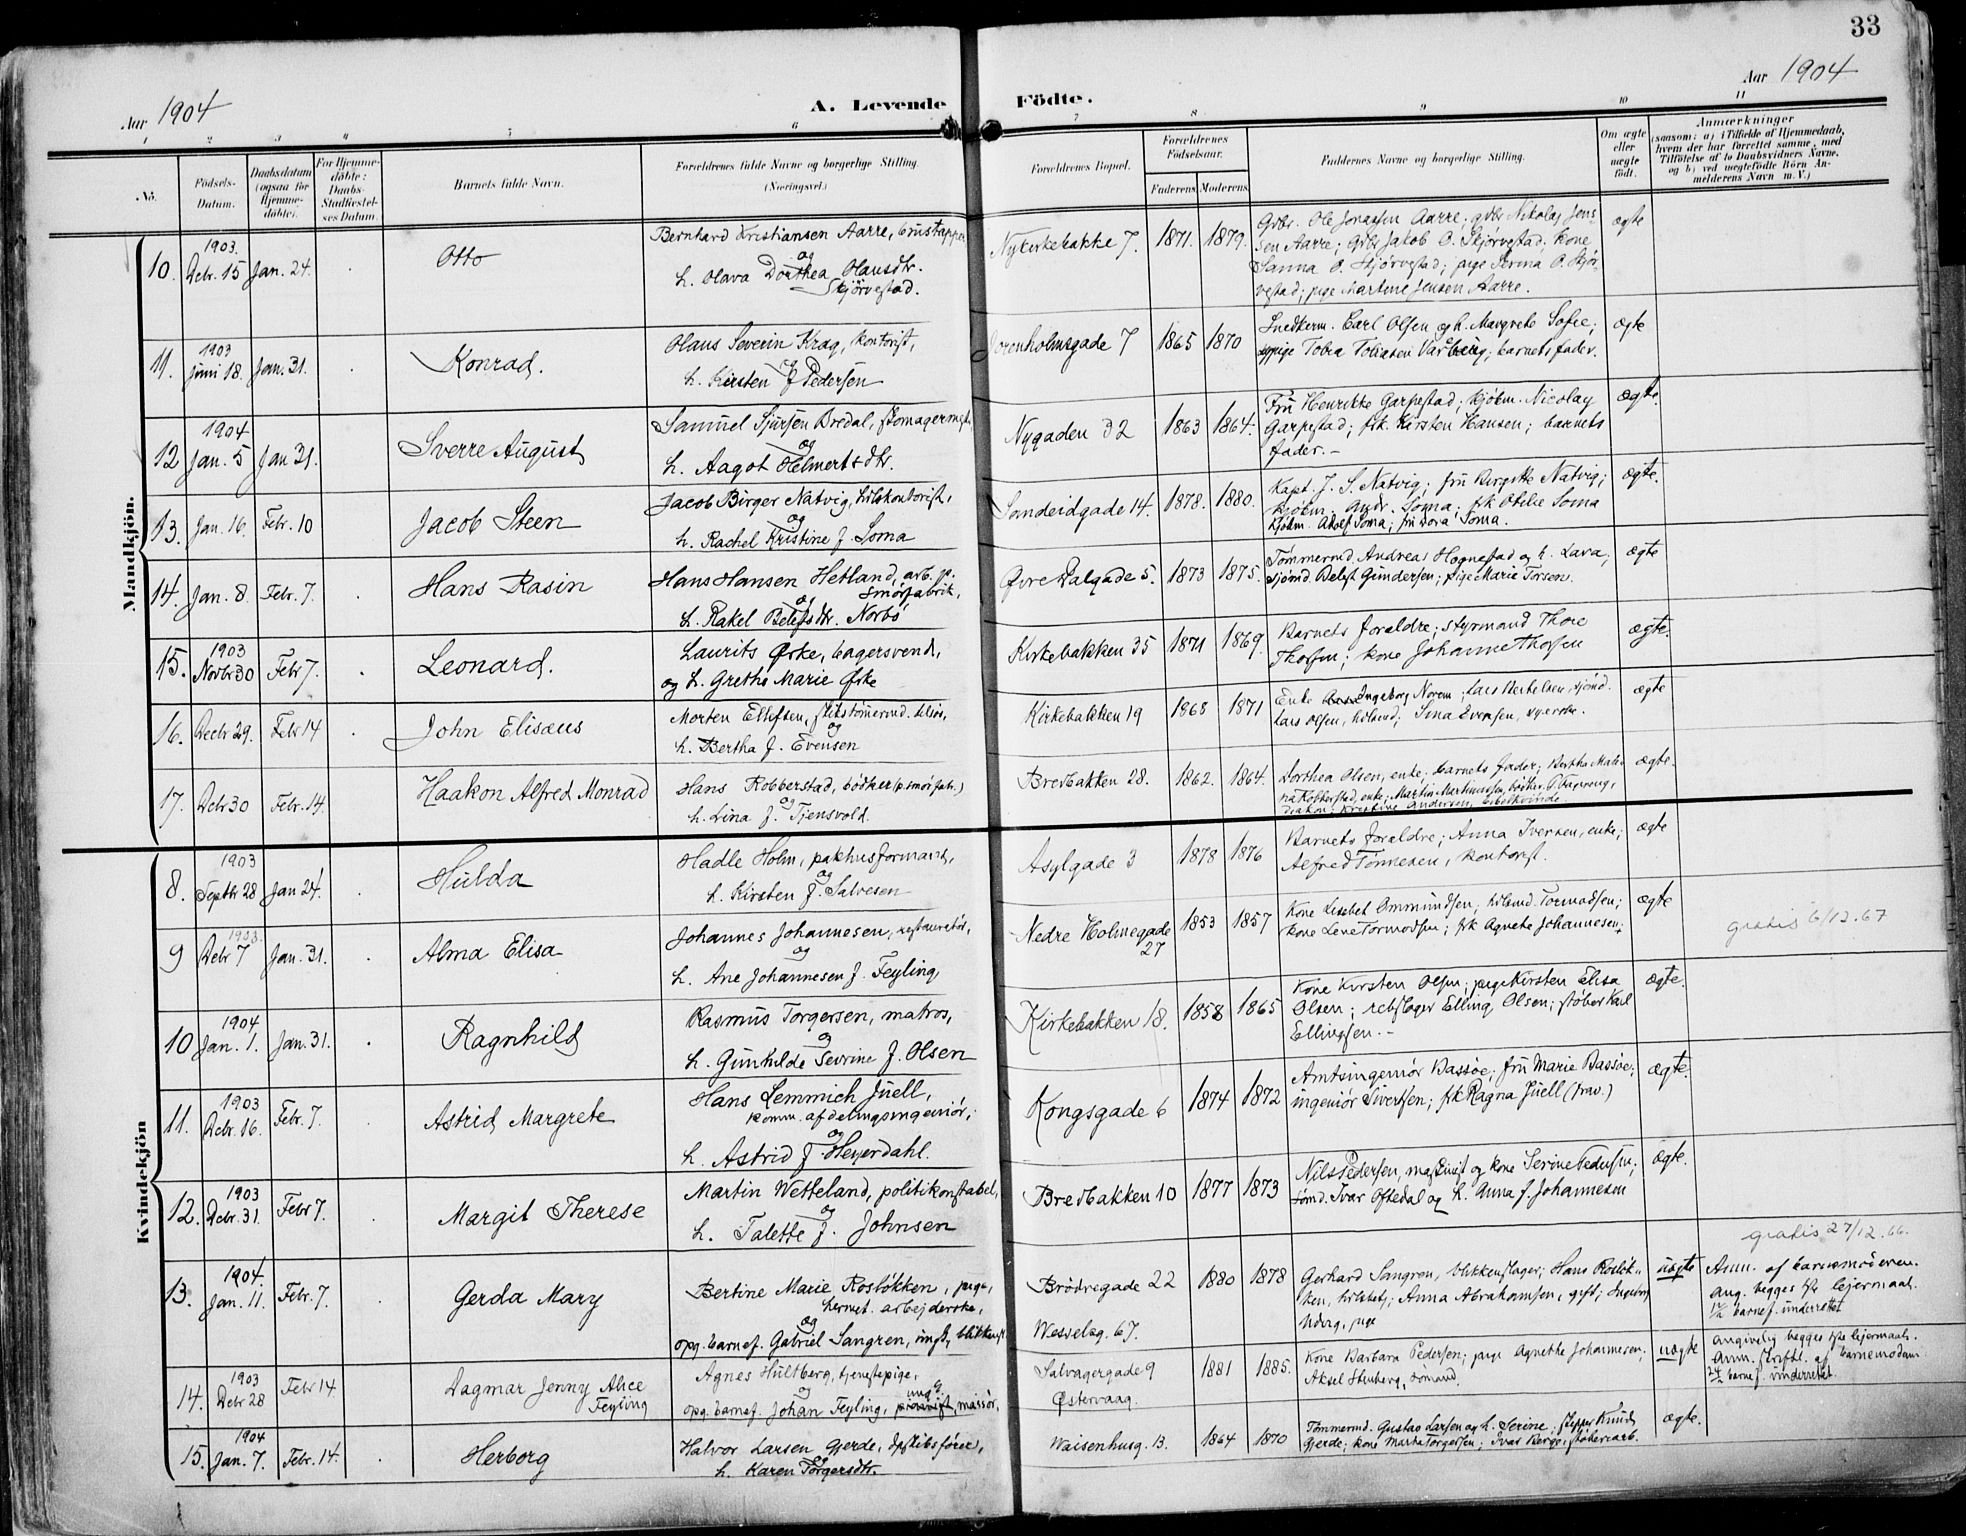 33
Aar 1904
A. Levende
Födte.
Aar 1904
1 2 3 4 5 6 7 8 9 10 11
No.
Födsels-Datum.
Daabsdatum (ogsaa for Hjemme-döbte).
For Hjemme-döbte: Daabs-Stadfæstel-ses Datum.
Barnets fulde Navn.
Forældrenes fulde Navne og borgerlige Stilling. (Næringsvei.)
Forældrenes Bopæl.
Forældrenes Födselsaar.
Faderens. Moderens.
Faddernes Navne og borgerlige Stilling.
Om ægte eller uægte födt.
Anmærkninger
(saasom: a) i Tilfælde af Hjemmedaab,
hvem der har forrettet samme, med
Tilföielse af to Daabsvidners Navne,
og b) ved uægtefödte Börn An-
melderens Navn m. V.)
Mandkjön.
10. 1903. Debr. 15 Jan. 24. Otto
Bernhard Kristiansen Aarre,
og
h. Olava Dorthea Olausdtr.
Skjörvestad.
Nykirkebakke 7. 1871. 1879.
Gdbr. Ole Jonassen Aarre; gdbr Nikolay Jens-
sen Aarre; gdbr Jakob O. Skjörvestad; kone
Sanna O. Skjörvestad; pige Serina O. Skjör-
vestad; pige Martine Jensen Aarre.
ægte
11. 1903 Juni 18. Jan. 31. Konrad.
Hans Severin Krag, kontorist,
og
h. Kirsten f Pedersen
Jorenholmsgade 7 1865 1870
Snedkerm. Carl Olsen og h. Margrete Sofie;
pige Tobea Tobiasen Varberg; barnets fader.
ægte
12 1904 Jan. 5 Jan 31. Sverre August
Samuel Sjursen Bredal, skomagermest.
og
h. Aagot Helmertsdtr.
Nygaden 32 1863 1864.
Fru Henrikke Garpestad; kjöbm. Nicolay
Garpestad; frk. Kirsten Hansen; barnets
fader. -
ægte.
13. Jan. 16. Febr. 10 Jacob Steen
Jacob Birger Natvig, kontorist,
og
h. Rachel Kristine f. Soma
Sandeidgade 14 1878. 1880.
Kapt. J. S. Natvig; fru Birgitte Natvig;
kjöbm. Andr. Soma; frk Otilie Soma
kjöbm. Adolf Soma; fru Dora Soma.
ægte.
14. Jan. 8. Febr. 7. Hans Rasin
Hans Hansen Hetland, arb. p.
smörfabrik,
og
h. Rakel Belestsdtr. Norbö
Øvre Dalgade 5. 1873 1875.
Tömmermd. Andreas Hognestad og h. Lava;
sjömd. Belest Gundersen; pige Marie Torsen.
ægte
15. 1903 Novbr 30 Febr 7. Leonard.
Laurits Øske, bagersvend,
og h. Grethe Marie Øske
Kirkebakken 35 1871 1869.
Barnets forældre; styrmand Thore
Thorsen; kone Johanne Thorsen
ægte.
16. Decbr 29. Febr 14 John Elisæus
Morten Ellefsen, skibstömermd.
og
h. Bertha f. Evensen
Kirkebakken 19 1868 1871
Enke Ingeborg Norem; Lars Bertelsen, sjömd.
Lars Olsen, Sina Evensen, syerske.
ægte
17. Debr 30 Febr. 14. Haakon Alfred Monrad
Hans Robberstad, bödker (p. smörfabr.)
og
h. Lina f. Tjensvold.
Bredbakken 28. 1862. 1864.
Dorthea Olsen, enke; barnets fader; Bertha Male-
na Robberstad, enke; Martin Martinussen, bödker;
diakon; Kristine Andersen, bibelkvinde
ægte.
Kvindekjön
8. 1903 Septbr 28 Jan 24. Hulda
Hadle Holm, pakhusformand,
og
h. Kirsten f. Salvesen
Asylgade 3 1878 1876
Barnets forældre; Anna Iversen, enke;
Alfred Tönnesen, kontorist.
ægte
9 1903. Debr 7 Jan. 31. Alma Elisa
Johannes Johannesen, restauratör,
og
h. Ane Johannesen f. Feyling,
Nedre Holmegade
27 1853 1857
Kone Lisabet Ommundsen; Tormodsen;
kone Lene Tormodsen; frk Agnete Johannesen.
ægte
gratis 6/12. 67
10 1904 Jan. 1. Jan. 31. Ragnhild
Rasmus Torgersen, matros,
og
h. Gunhilde Sevrine f. Olsen
Kirkebakken 18. 1858 1865
Kone Kirsten Olsen; pige Kirsten Elisa
Olsen; rebslager Elling Olsen; støber Karl
Ellingsen. -
ægte.
11. 1903 Debr. 16. Febr. 7. Astrid Margrete
Hans Lemmich Juell,
komm. afdelingsingeniör,
og
h. Astrid f. Heyerdahl.
Kongsgade 6 1874 1872
Amtsingeniör Bassöe; fru Marie Bassöe;
ingeniör Sivertsen; frk Ragna Juell (frav.)
ægte.
12. 1903 Debr. 31. Febr 7. Margit Therese
Martin Wetteland, politikonstabel,
og
h. Talette f. Johnsen
Bredbakken 10 1877 1873
Nils Pedersen, maskinist og kone Serine Pedersen;
sömd. Ivar Oftedal og h. Anna f. Johannesen
ægte.
gratis 27/12. 66.
13. 1904. Jan. 11. Febr. 7. Gerda Mary
Bertine Marie Roslökken, pige,
hermet. arbejderske,
og
opg. barnef. Gabriel Sangren, ungk, blikkensl.
Brödregade 22
Wesselsg. 67. 1880 1878
Gerhard Sangren, blikkenslager; Hans Roslök-
ken, Anna Abrahamsen, gift; Ingeborg
pige
uægte
Anm. af barnemoderen.
ang. begges 1ste lejermaal.
barnef. underrettet
14. 1903 Debr 28 Febr 14. Dagmar Jenny Alice
Feyling
Agnes Hultberg, tjenestepige,
og
opg. barnef. Johan Feyling, ungk, matros,
Salvagergade 9
Østervaag. 1881 1885.
Kone Barbara Pedersen; pige Agnethe Johannesen;
Aksel Stenberg, sömand.
uægte
angivelig begges 1ste lejermaal.
Anm. skriftl. af barnemoderen
barnef. underrettet.
15. 1904 Jan. 7. Febr. 14. Herborg
Halvor Larsen Gjerde, dpskibsförer,
og
h. Karen Torgersdtr.
Waisenhusg. 13. 1864 1870
Tömmermd. Gustav Larsen og h. Serine; skipper Knud
Gjerde; kone Marta Torgersen; Ivar Berge, støberiarb.
ægte.